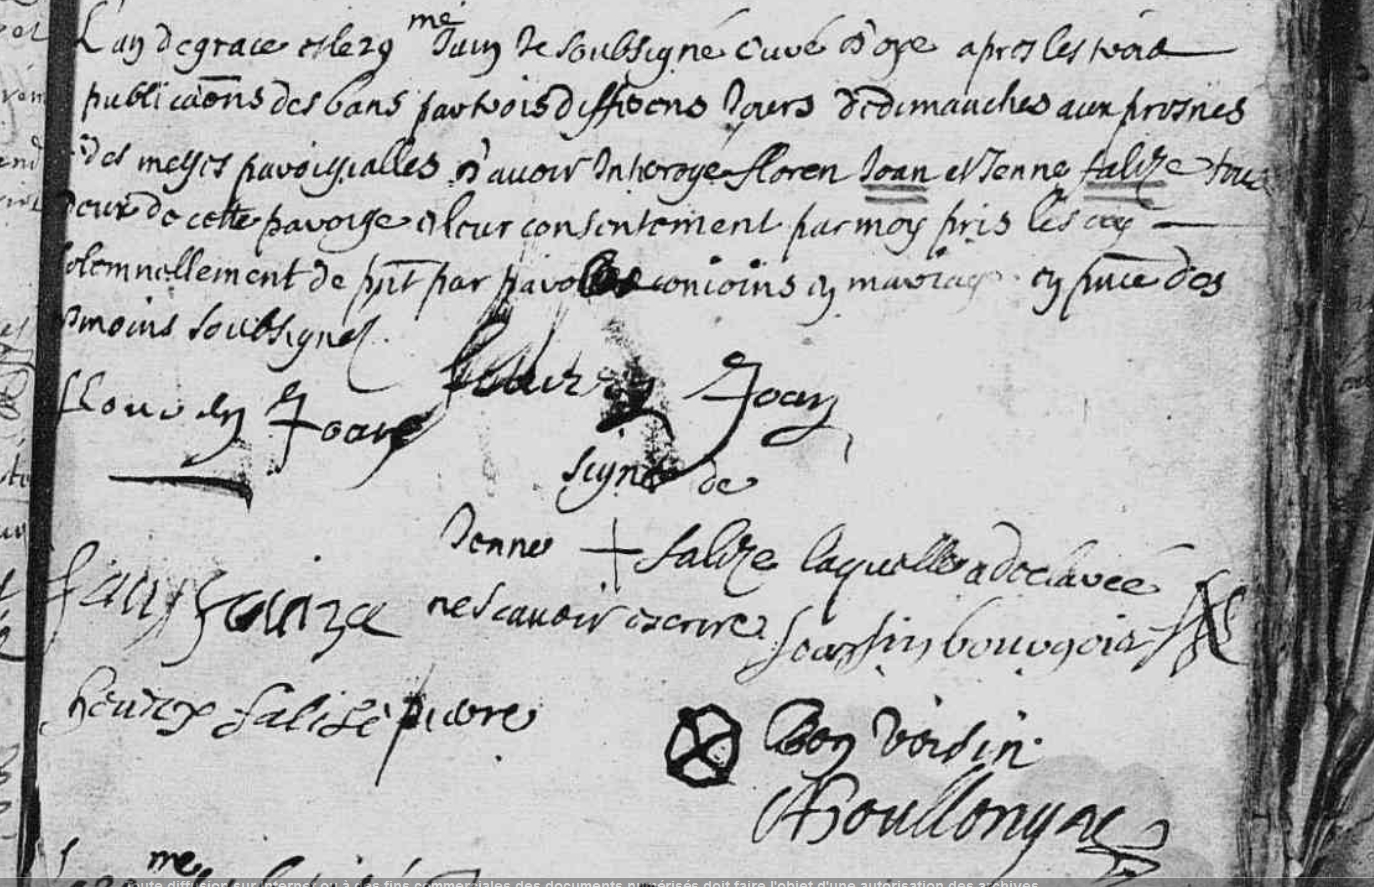 L'an de grace et le 29me Juin Je soubsigné curé d'oye apres les trois
publicaõns des bans par trois differens Jours de dimanches aux prosnes
des messes paroissialles d'avoir Interogé floren Joan et Jenne falize tous
deux de cette paroisse et leur consentement par moy pris les ay
solemnellement de pñt par parolles conioins en mariage en pñce des
temoins soubsignes
flouren Joan
Joan
signe de
Jenne + falize laquelle a declarée
ne scavoir escrire
bourgois
falise pierre
Bon voisin
toute diffusion sur internet ou à des fins commerciales des documents numérisés doit faire l'objet d'une autorisation des archives